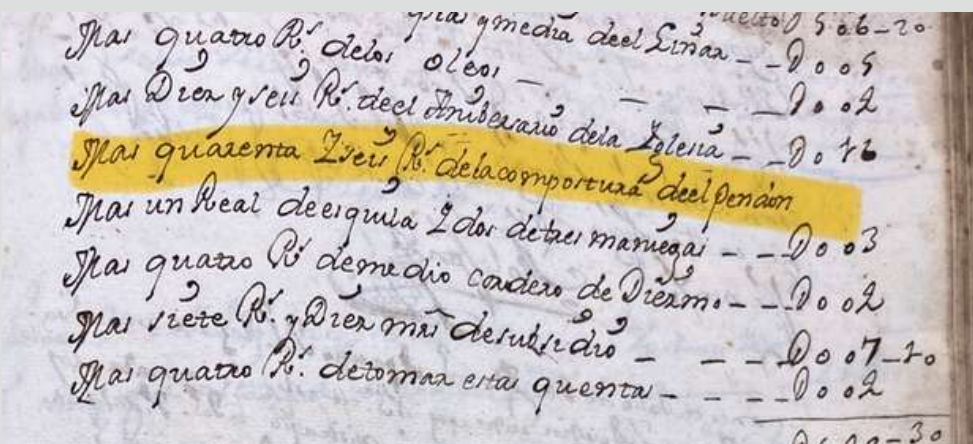 y media deel Linar - - D 0 0 5
Mas quatro Rs. delos oleos - - - - D 0 0 2
Mas Diez y seis Rs. deel Aniversario dela Iglesia - - D 0 16
Mas quarenta Y seis Rs. dela compostura deel pendon
Mas un Real de esquila Y dos de tres maniegas - - - D 0 0 3
Mas quatro Rs de medio cordero de Diezmo - - - D 0 0 2
Mas siete Rs. y Diez mrs de subsidio - - - - D 0 0 7 - 10
Mas quatro Rs. de tomar estas quentas - - - - D 0 0 2